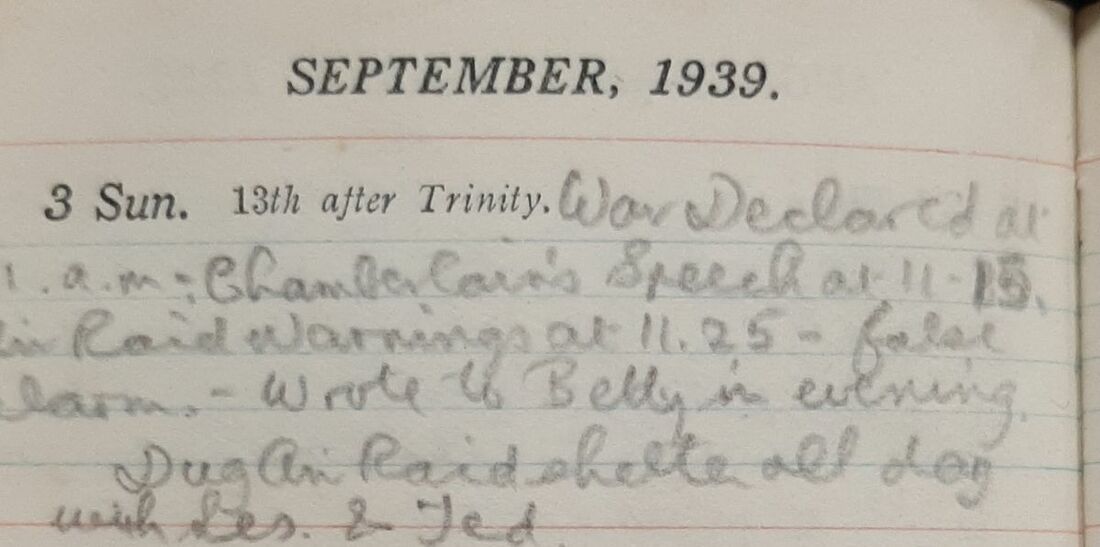 SEPTEMBER, 1939.
3 Sun. 13th after Trinity. War Declared at
1. a.m; Chamberlain's Speech at 11-15.
Raid Warnings at 11.25 - false
larm. - Wrote to Betty in evening.
Dug Air Raid shelter all day
with Les. & Ted